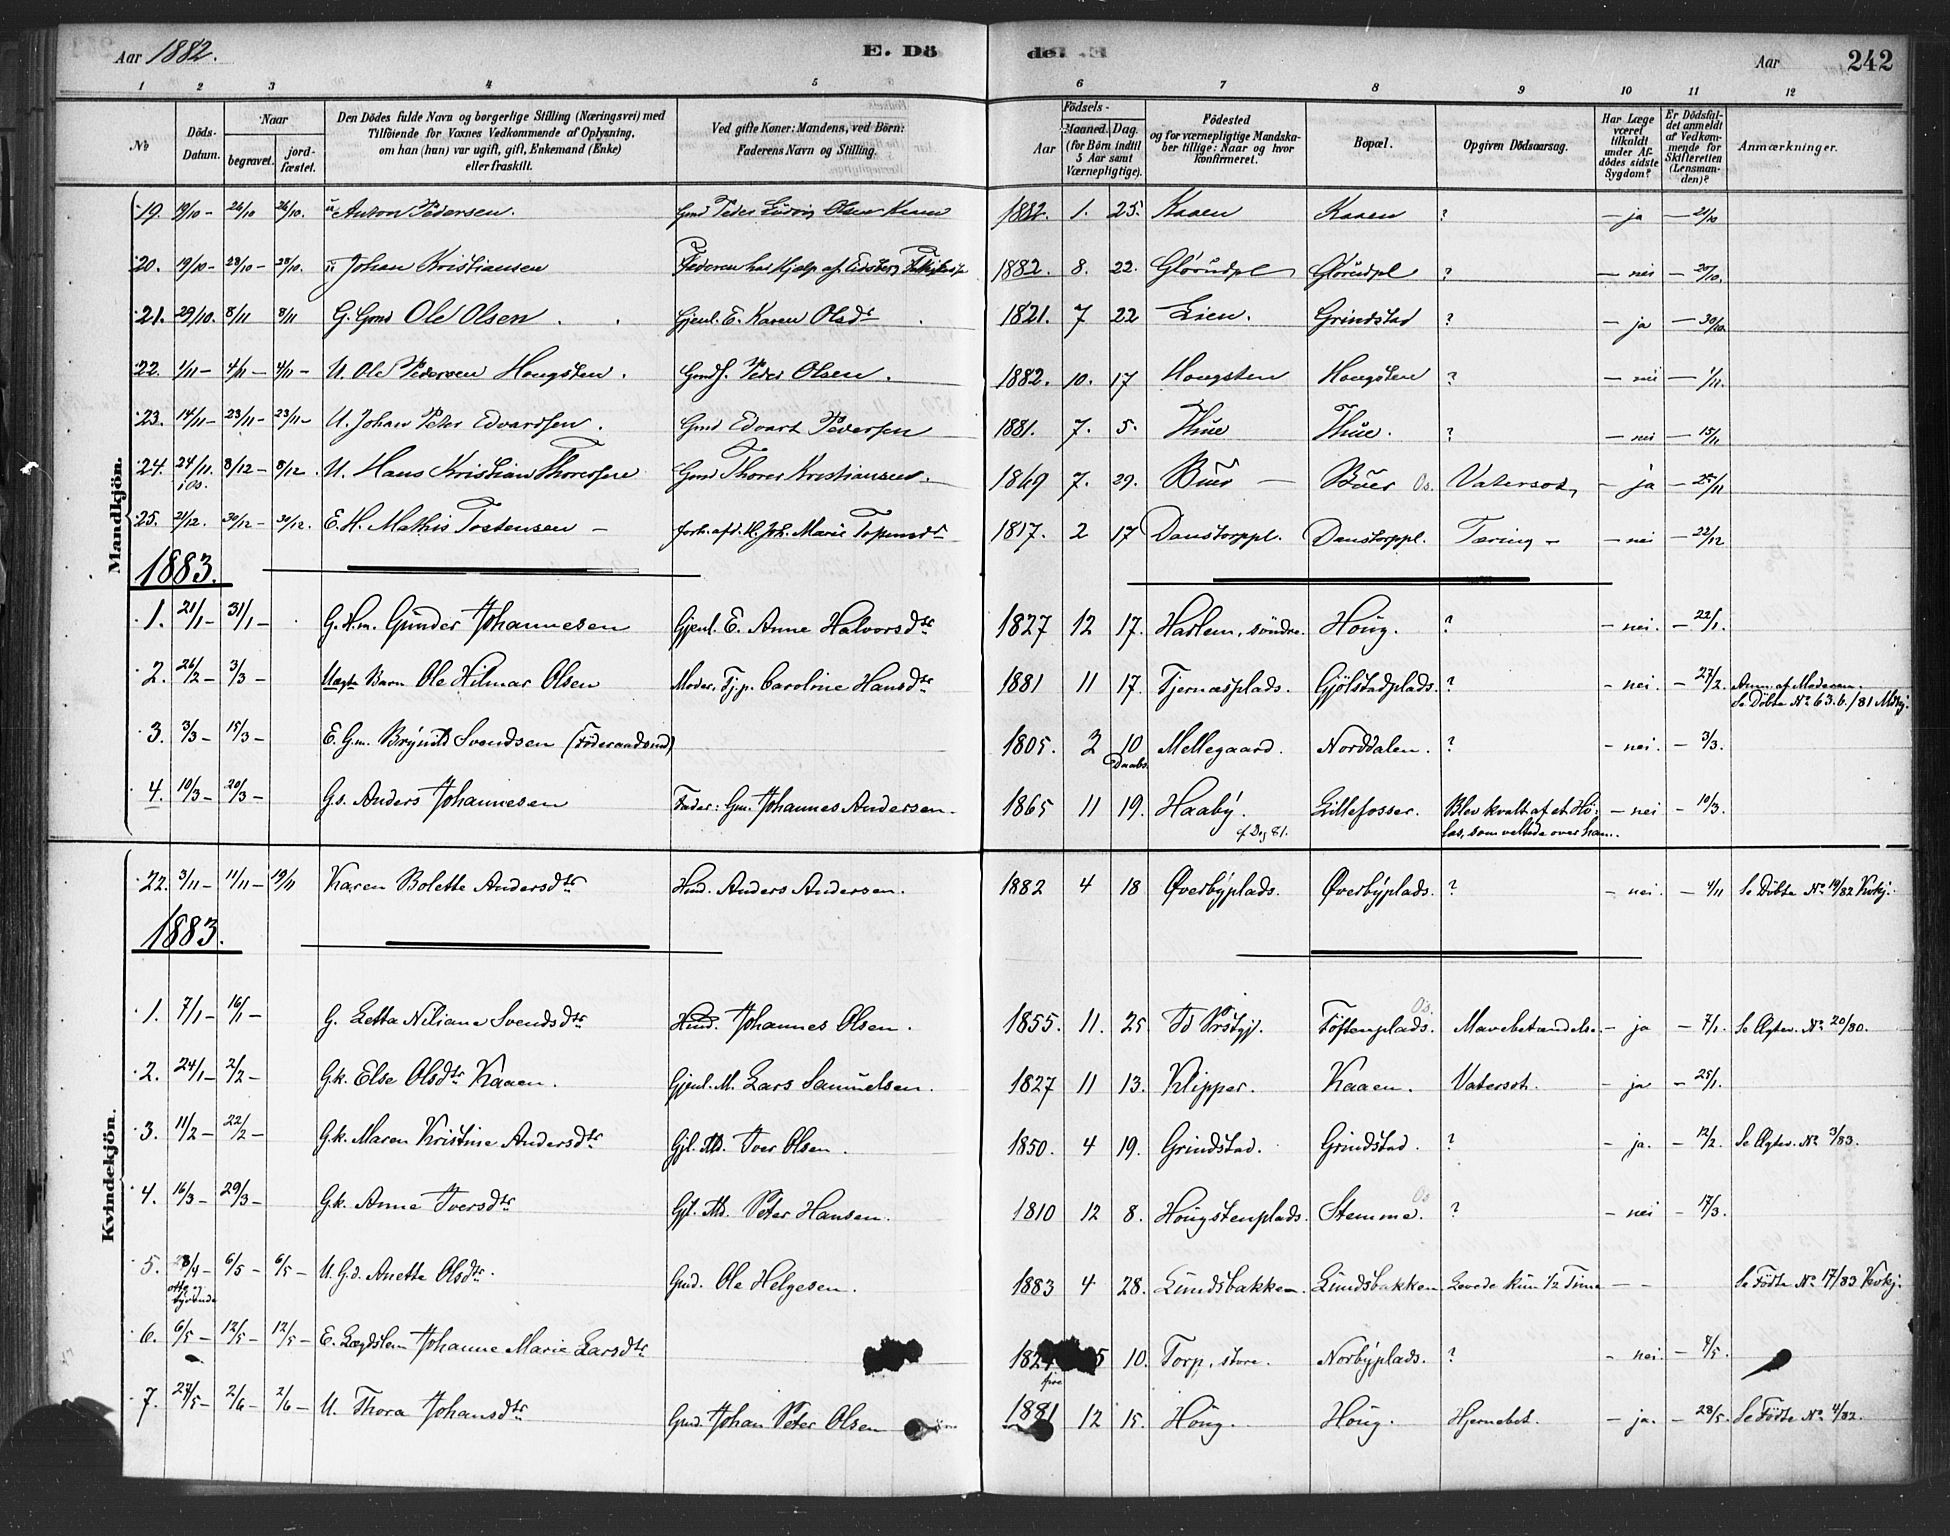 Aar 1882. E. Dö de. Aar 242
1 2 3 4 5 6 7 8 9 10 11 12
No Döds-Datum. Naar begravet. jordfæstet. Den Dödes fulde Navn og borgerlige Stilling (Næringsvei) med Tilföiende for Voxnes Vedkommende af Oplysning, om han (hun) var ugift, gift, Enkemand (Enke) eller fraskilt. Ved gifte Koner: Mandens, ved Börn: Faderens Navn og Stilling. Födsels- Aar Maaned. Dag. (for Börn indtil 5 Aar samt Værnepligtige). Födested og for værnepligtige Mandskaber tillige: Naar og hvor Konfirmeret. Bopæl. Opgiven Dödsaarsag. Har Læge været tilkaldt under Afdödes sidste Sygdom? Er Dödsfaldet anmeldt af Vedkommende for Skifteretten (Lensmanden)? Anmærkninger.
Mandkjön.
19. 19/10 - 26/10 26/10. u Anton Pedersen. Gmd Peder Ludvig Olsen Kaaen 1882. 1. 25. Kaaen Kaaen ? - ja - 21/10
20. 19/10 - 28/10 - 28/10. u Johan Kristiansen Föderen har hjælp af Eidsberg 1882. 8. 22. Glörudpl Glörudpl ? - nei - 20/10.
21. 29/10. 8/11 8/11 G. Gmd Ole Olsen. Gjenl. E. Karen Olsdr 1821. 7 22 Lien. Grindstad ? - ja - 30/10.
22. 1/11 - 4/11 - 4/11 - U. Ole Pedersen Hougsten. Gmdf. Peder Olsen. 1882. 10. 17 Hougsten Hougsten ? - nei - 1/11.
23. 14/11 - 23/11 - 23/11 - U. Johan Peter Edvardsen. Gmd Edvart Pedersen 1881. 7. 5. Thue Thue. ? - nei - 15/11
24. 24/11. i Os. 8/12 - 8/12. U. Hans Kristian Thoresen Gmd Thorer Kristiansen. 1869 7. 29. Buer - Buer Os. Vatersot, - ja - 25/11
25. 21/12. 30/12 - 30/12. E. H. Mathis Tostensen - forh. afd. H. Joh. Marie 1817. 2 17 Danstorppl. Danstorppl. Tæring - - nei - 22/12
1883.
1. 21/1 - 31/1 - G. H.m. Gunder Johannesen Gjenl. E. Anne Halvorsdtr 1827 12 17. Haslem, söndre. Houg. ? - nei. - 22/1.
2. 26/2 - 3/3 - Uægte Barn Ole Hilmar Olsen Moder, Tj.p. Caroline Hansdtr 1881 11 17. Tjernæsplads. Gjölstadplads. ? - nei. - 27/2. Anm. af Moderen. Se Döbte No 63. b./81 Mdkj.
3. 3/3 - 15/3 - E. G.m. Brynild Svendsen (Föderaadsmd) 1805. 2 10 Daabs. Mellegaard. Norddalen. ? - nei. - 3/3.
4. 10/3 - 20/3 - Gs. Anders Johannesen Fader: Gm. Johannes Andersen. 1865 11 19. Haaby. Lillefosser. Blev kvalt af et Hölas, som veltede over ham. - nei - 10/3.
Kvindekjön.
22. 3/11 - 11/11 - 19/11 Karen Bolette Andersdtr Hmd. Anders Andersen. 1882 4 18 Øverbyplads. Øverbyplads. ? - nei. - 4/11 Se Döbte No 19/82 Kvkj.
1883.
1. 7/1 - 16/1 - G. Letta Niliane Svendsdtr Hmd. Johannes Olsen. 1855. 11. 25 Id Prstgj. Töftenplads. Os. Mavebetændelse - ja - 7/1. Se Ægtev. No 20/80.
2. 24/1 - 2/2 - Gk. Else Olsdtr Kaaen. Gjenl. M. Lars Samuelsen. 1827 11 13. Klipper. Kaaen. Vatersot. - ja - 25/1.
3. 11/2 - 22/2 - Gk. Maren Kristine Andersdtr Gjl. Md. Iver Olsen. 1850. 4 19. Grindstad. Grindstad. ? - ja. - 12/2. Se Ægtev. No 3/83.
4. 16/3 - 29/3 - Gk. Anne Iversdtr Gjl. Md. Peter Hansen. 1810 12 8. Hougstenplads. Stemme. Os ? - nei - 17/3.
5. 28/4 6/5 - 6/5 - U. Gd. Anette Olsdtr. Gmd. Ole Helgesen. 1883 4 28. Lundsbakken. Lundsbakken Levede kun 1/2 Time - - Se Födte No 17/83 Kvkj.
6. 6/5 - 12/5 - 12/5 - E. Lægdslem Johanne Marie Larsdtr 1824 5 10. Torp, store. Norbyplads. ? - nei. - 8/5.
7. 27/5 - 2/6 - 2/6 - U. Thora Johansdtr Gmd. Johan Peter Olsen 1881 12 15. Houg. Houg. Hjernebet. - ja. - 28/5. Se Födte No 4/82.